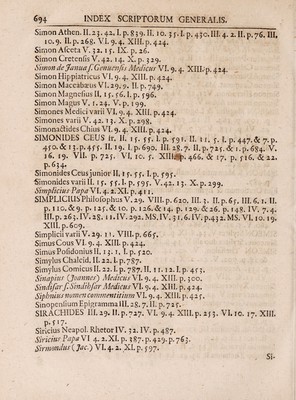 694 INDEX SCRIPTORUM GENERALIS.
Simon Athen. II. 23. 42. I. p. 839. II. 10. 35. I. p. 430. III. 4. 2. II. p. 76. III.
10. 9. II. p. 268. VI. 9. 4. XIII. p. 424.
Simon Asceta V. 32. 15. IX. p. 26.
Simon Cretensis V. 42. 14. X. p. 329.
Simon de Janua s. Genuensis Medicus VI. 9. 4. XIII. p. 424.
Simon Hippiatricus VI. 9. 4. XIII. p. 424.
Simon Maccabæus VI. 29. 9. II. p. 749.
Simon Magnesius II. 15. 56. I. p. 596.
Simon Magus V. 1. 24. V. p. 199.
Simones Medici varii VI. 9. 4. XIII. p. 424.
Simones varii V. 42. 13. X. p. 298.
Simonactides Chius VI. 9. 4. XIII. p. 424.
SIMONIDES CEUS sr. II. 15. 55. I. p. 591. II. 11. 5. I. p. 447. & 7. p.
450. & 13. p. 455. II. 19. I. p. 690. III. 28. 7. II. p. 725. & 1. p. 684. V.
16. 19. VII. p. 725. VI. 10. 5. XIII. p. 466. & 17. p. 516. & 22.
p. 634.
Simonides Ceus junior II. 15. 55. I. p. 595.
Simonides varii II. 15. 55. I. p. 595. V. 42. 13. X. p. 299.
Simplicius Papa VI. 4. 2. XI. p. 411.
SIMPLICIUS Philosophus V. 29. VIII. p. 620. III. 3. II. p. 65. III. 6. 1. II.
p. 110. & 9. p. 125. & 10. p. 126. & 14. p. 129. & 26. p. 148. IV. 7. 4.
III. p. 263. IV. 28. 11. IV. 292. MS. IV. 31. 6. IV. p. 432. MS. VI. 10. 19.
XIII. p. 609.
Simplicii varii V. 29. 11. VIII. p. 665.
Simus Cous VI. 9. 4. XIII. p. 424.
Simus Posidonius II. 13. 1. I. p. 520.
Simylus Chalcid. II. 22. I. p. 787.
Simylus Comicus II. 22. I. p. 787. II. 11. 12. I. p. 453.
Sinapius (Joannes) Medicus VI. 9. 4. XIII. p. 300.
Sindifar s. Sindihsar Medicus VI. 9. 4. XIII. p. 424.
Siphnius nomen commentitium VI. 9. 4. XIII. p. 425.
Sinopensium Epigramma III. 28. 7. II. p. 725.
SIRACHIDES III. 29. II. p. 727. VI. 9. 4. XIII. p. 253. VI. 10. 17. XIII.
p. 517.
Siricius Neapol. Rhetor IV. 32. IV. p. 487.
Siricius Papa VI 4. 2. XI. p. 387. p. 429. p. 763.
Sirmondus (Jac.) VI. 4. 2. XI. p. 597.
Si-